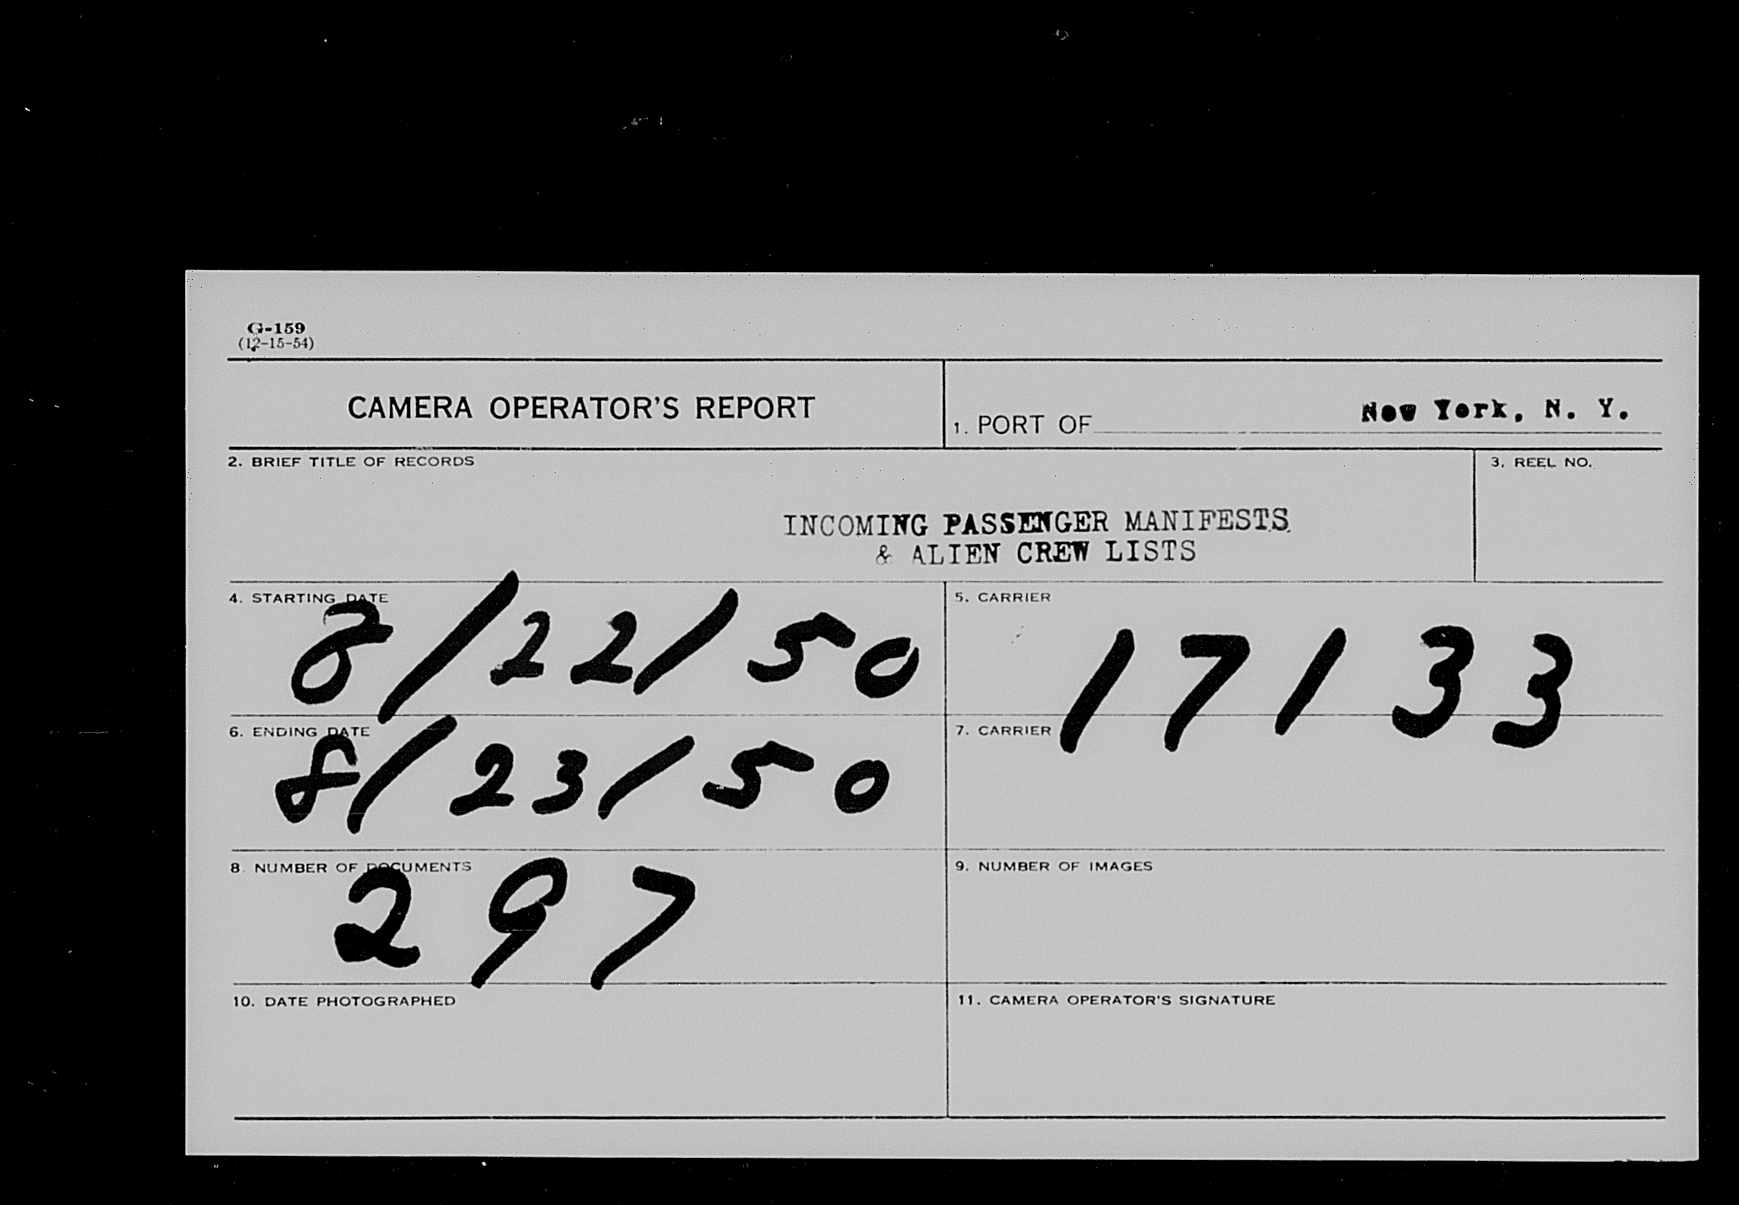 G-159
(12-15-54)
CAMERA OPERATOR'S REPORT
1. PORT OF New York, N. Y.
2. BRIEF TITLE OF RECORDS
3. REEL NO.
INCOMING PASSENGER MANIFESTS
& ALIEN CREW LISTS
4. STARTING DATE
8/22/50
5. CARRIER
17133
6. ENDING DATE
8/23/50
7. CARRIER
8. NUMBER OF DOCUMENTS
297
9. NUMBER OF IMAGES
10. DATE PHOTOGRAPHED
11. CAMERA OPERATOR'S SIGNATURE